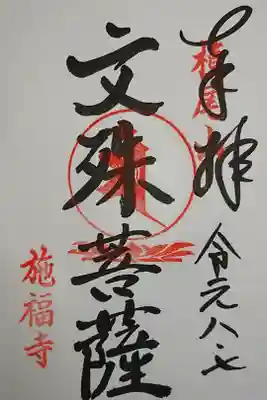 奉拝
令元八・七
文殊菩薩
施福寺